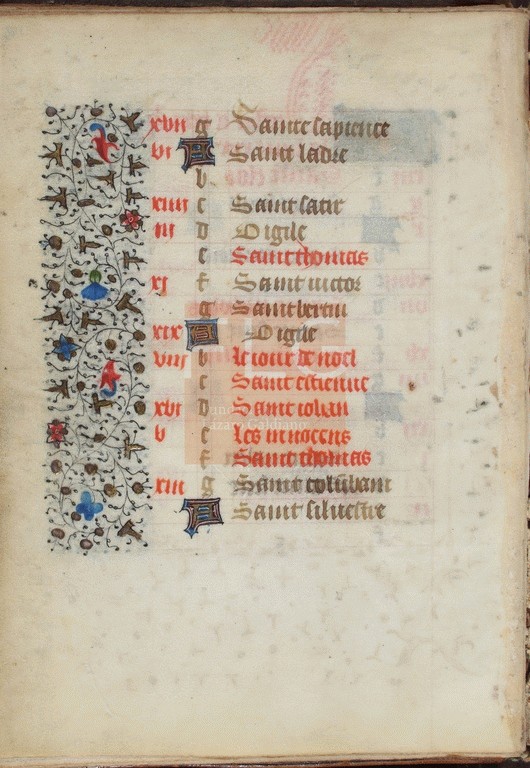 xvii g Sainte sapience
vi A Saint ladre
b
xiiii c Saint satir
iii d Vigile
e Saint thomas
xi f Saint victor
g Saint bertin
xix A Vigile
viii b le iour de noel
c Saint estienne
xvi d Saint iohan
v e les innocens
f Saint thomas
xiii g Saint colubant
A Saint silvestre
Lázaro Galdiano